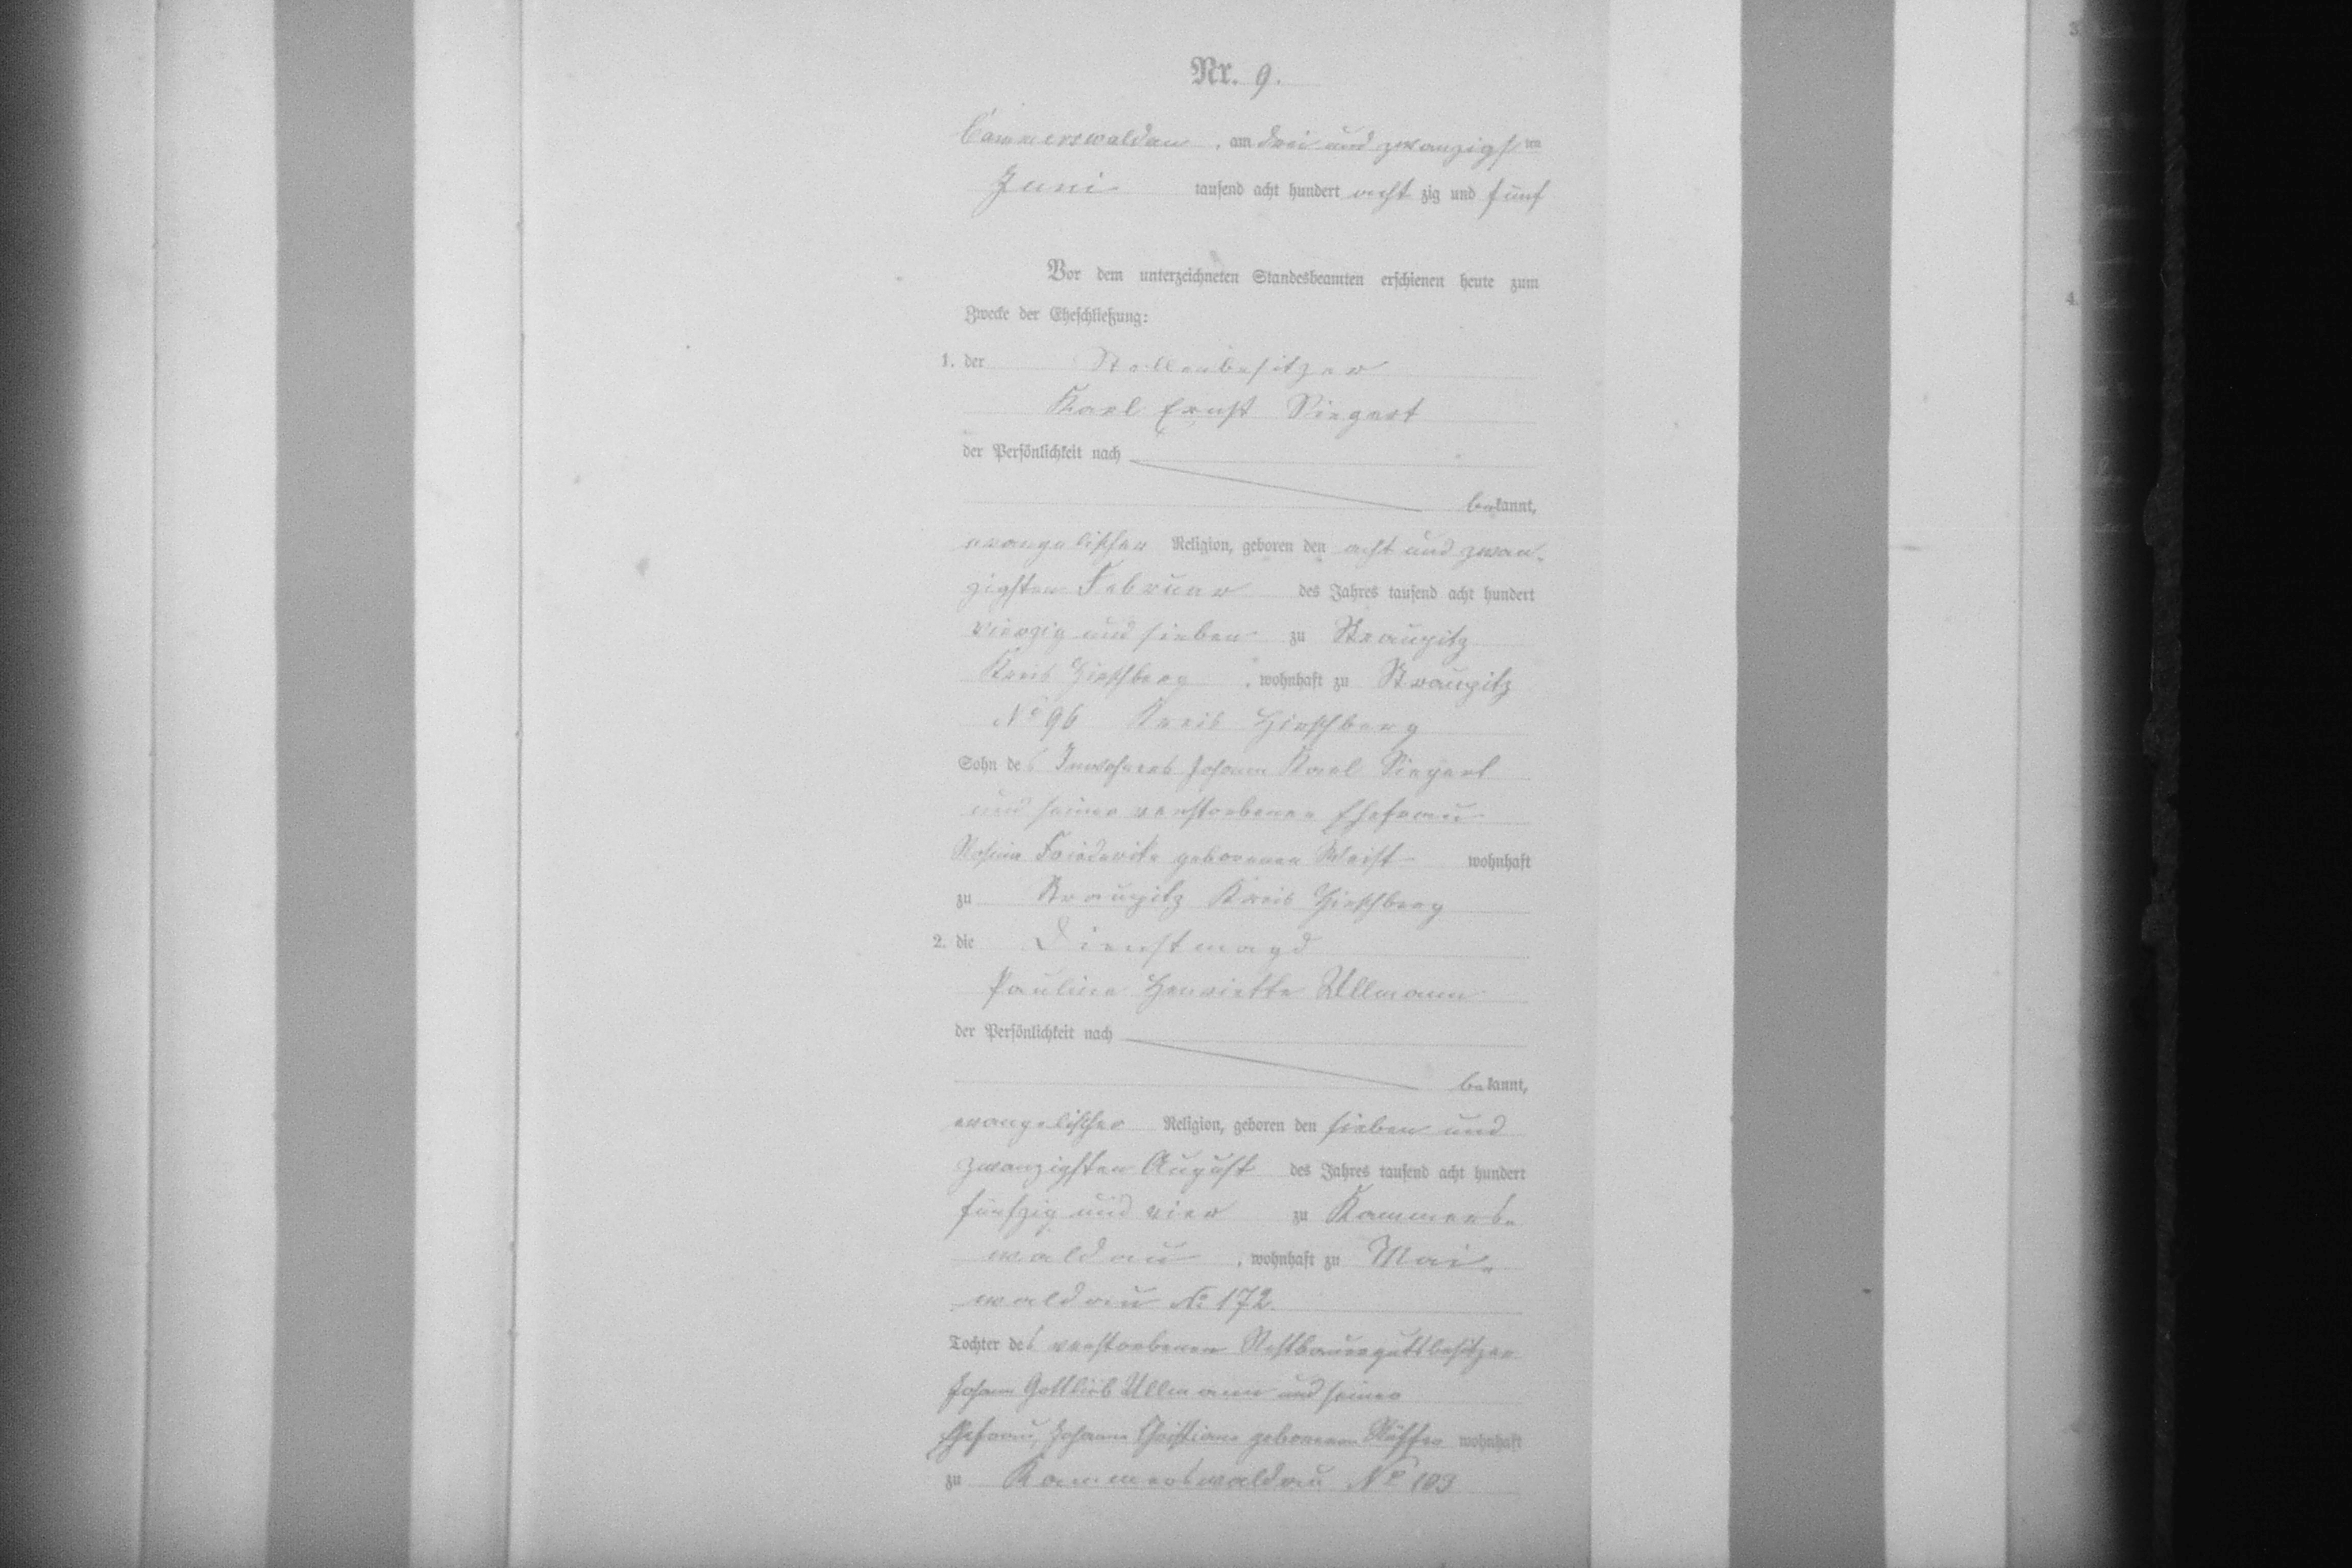 Nr. 9.
Cammerswaldau, am drei und zwanzigsten
Juni tausend acht hundert acht zig und fünf
Vor dem unterzeichneten Standesbeamten erschienen heute zum
Zwecke der Eheschließung:
1. der Stellenbesitzer
Karl Ernst Siegert
der Persönlichkeit nach
bekannt,
evangelischer Religion, geboren den acht und zwan-
zigsten Februar des Jahres tausend acht hundert
vierzig und sieben zu Straupitz
Kreis Hirschberg, wohnhaft zu Straupitz
No 96 Kreis Hirschberg
Sohn des Inwohners Johann Karl Siegert
und seiner verstorbenen Ehefrau
Rosina Friederike geborenen Weist wohnhaft
zu Straupitz Kreis Hirschberg
2. die Dienstmagd
Pauline Henriette Ullmann
der Persönlichkeit nach
bekannt,
evangelischer Religion, geboren den sieben und
zwanzigsten August des Jahres tausend acht hundert
fünfzig und vier zu Kammers-
waldau, wohnhaft zu Mai-
waldau No 172.
Tochter des verstorbenen Restbauergutsbesitzer
Johann Gottlieb Ullmann und seiner
Ehefrau, Johanne Christiane geborenen wohnhaft
zu Kammerswaldau No 103